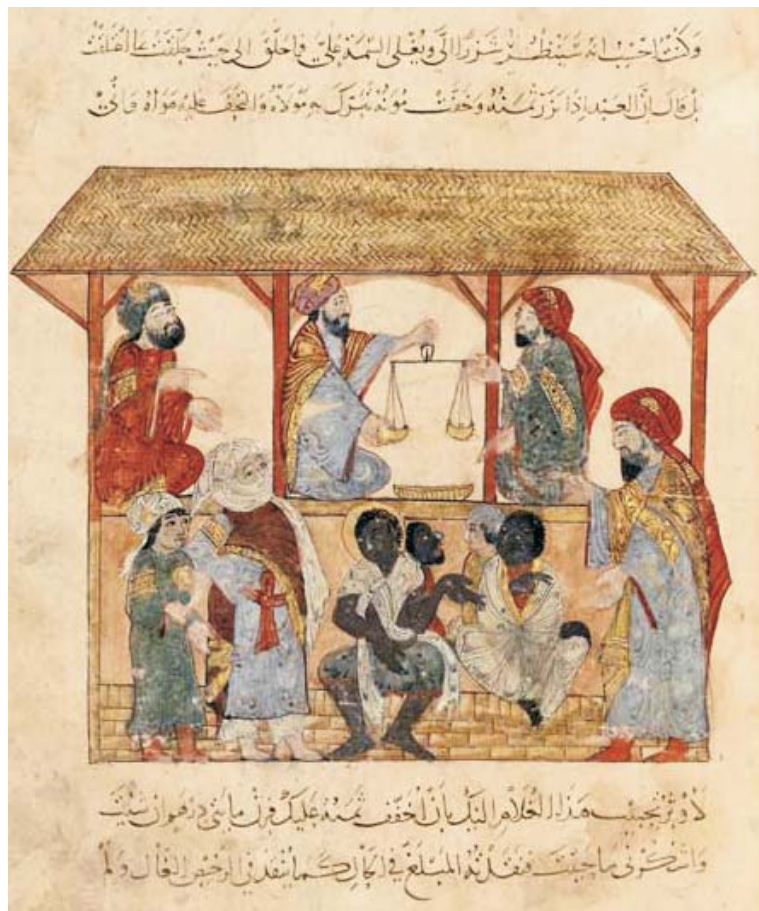 وكنت احسب انه سينظر شزرا الي ويغلي السيمة علي فما حلق الى حيث حلقت اعتلقت
بل قال ان العبد اذا نزر ثمنه وخفت مونه تبرك به مولاه والتحف عليه هواه واني
لاوثر تحبيب هذا الغلام اليك بان اخفف ثمنه عليك فزن مايتي درهم ان شيت
واشكر لي ما حييت فنقدته المبلغ في الحال كما ينقد في الرخيص الغال ولم